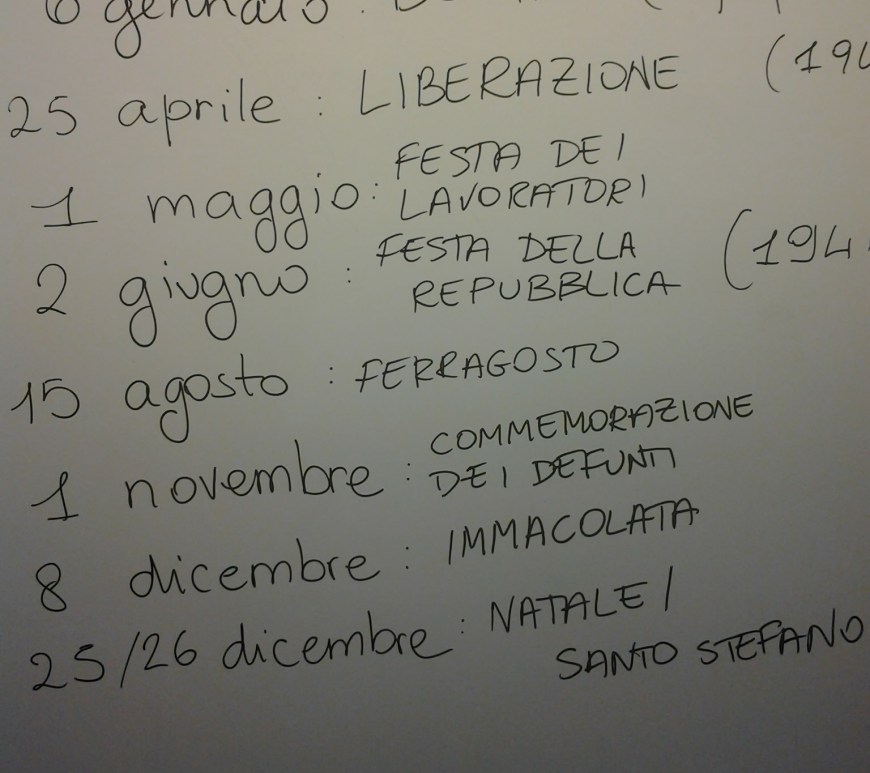 6 gennaio :
25 aprile : LIBERAZIONE (194
1 maggio : FESTA DEI
LAVORATORI
2 giugno : FESTA DELLA
REPUBBLICA (194
15 agosto : FERRAGOSTO
1 novembre : COMMEMORAZIONE
DEI DEFUNTI
8 dicembre : IMMACOLATA
25/26 dicembre : NATALE/
SANTO STEFANO